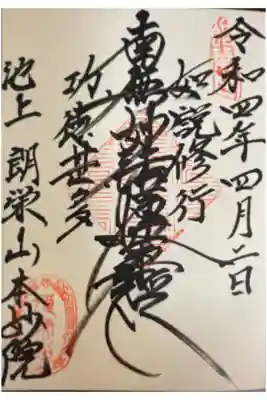 令和四年四月二日
如説修行
南無妙法蓮華経
功徳甚多
池上 朗栄山本妙院